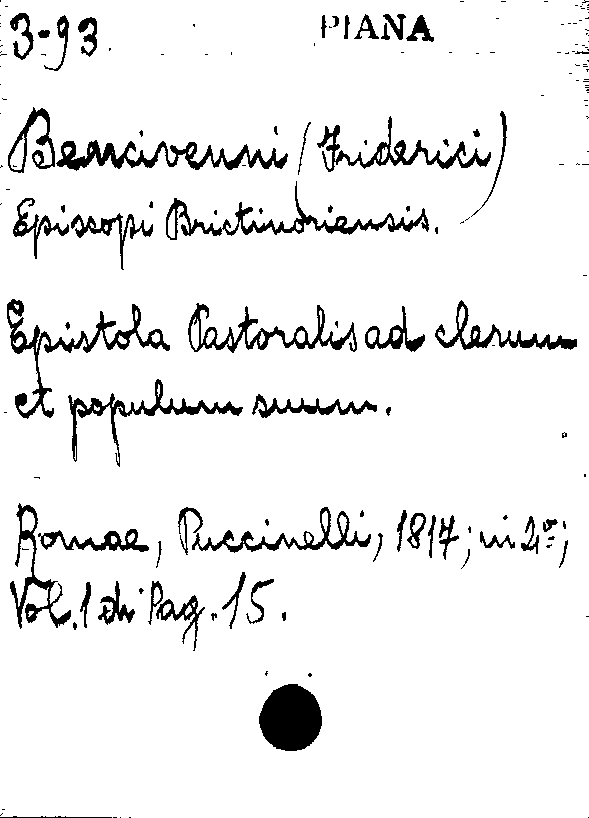 3-93
PIANA
Bencivenni (Friderici)
Episcopi Brictinoriensis.
Epistola Pastoralis ad clerum
et populum suum.
Romae, Puccinelli, 1817; in 4º;
Vol. 1 di Pag. 15.